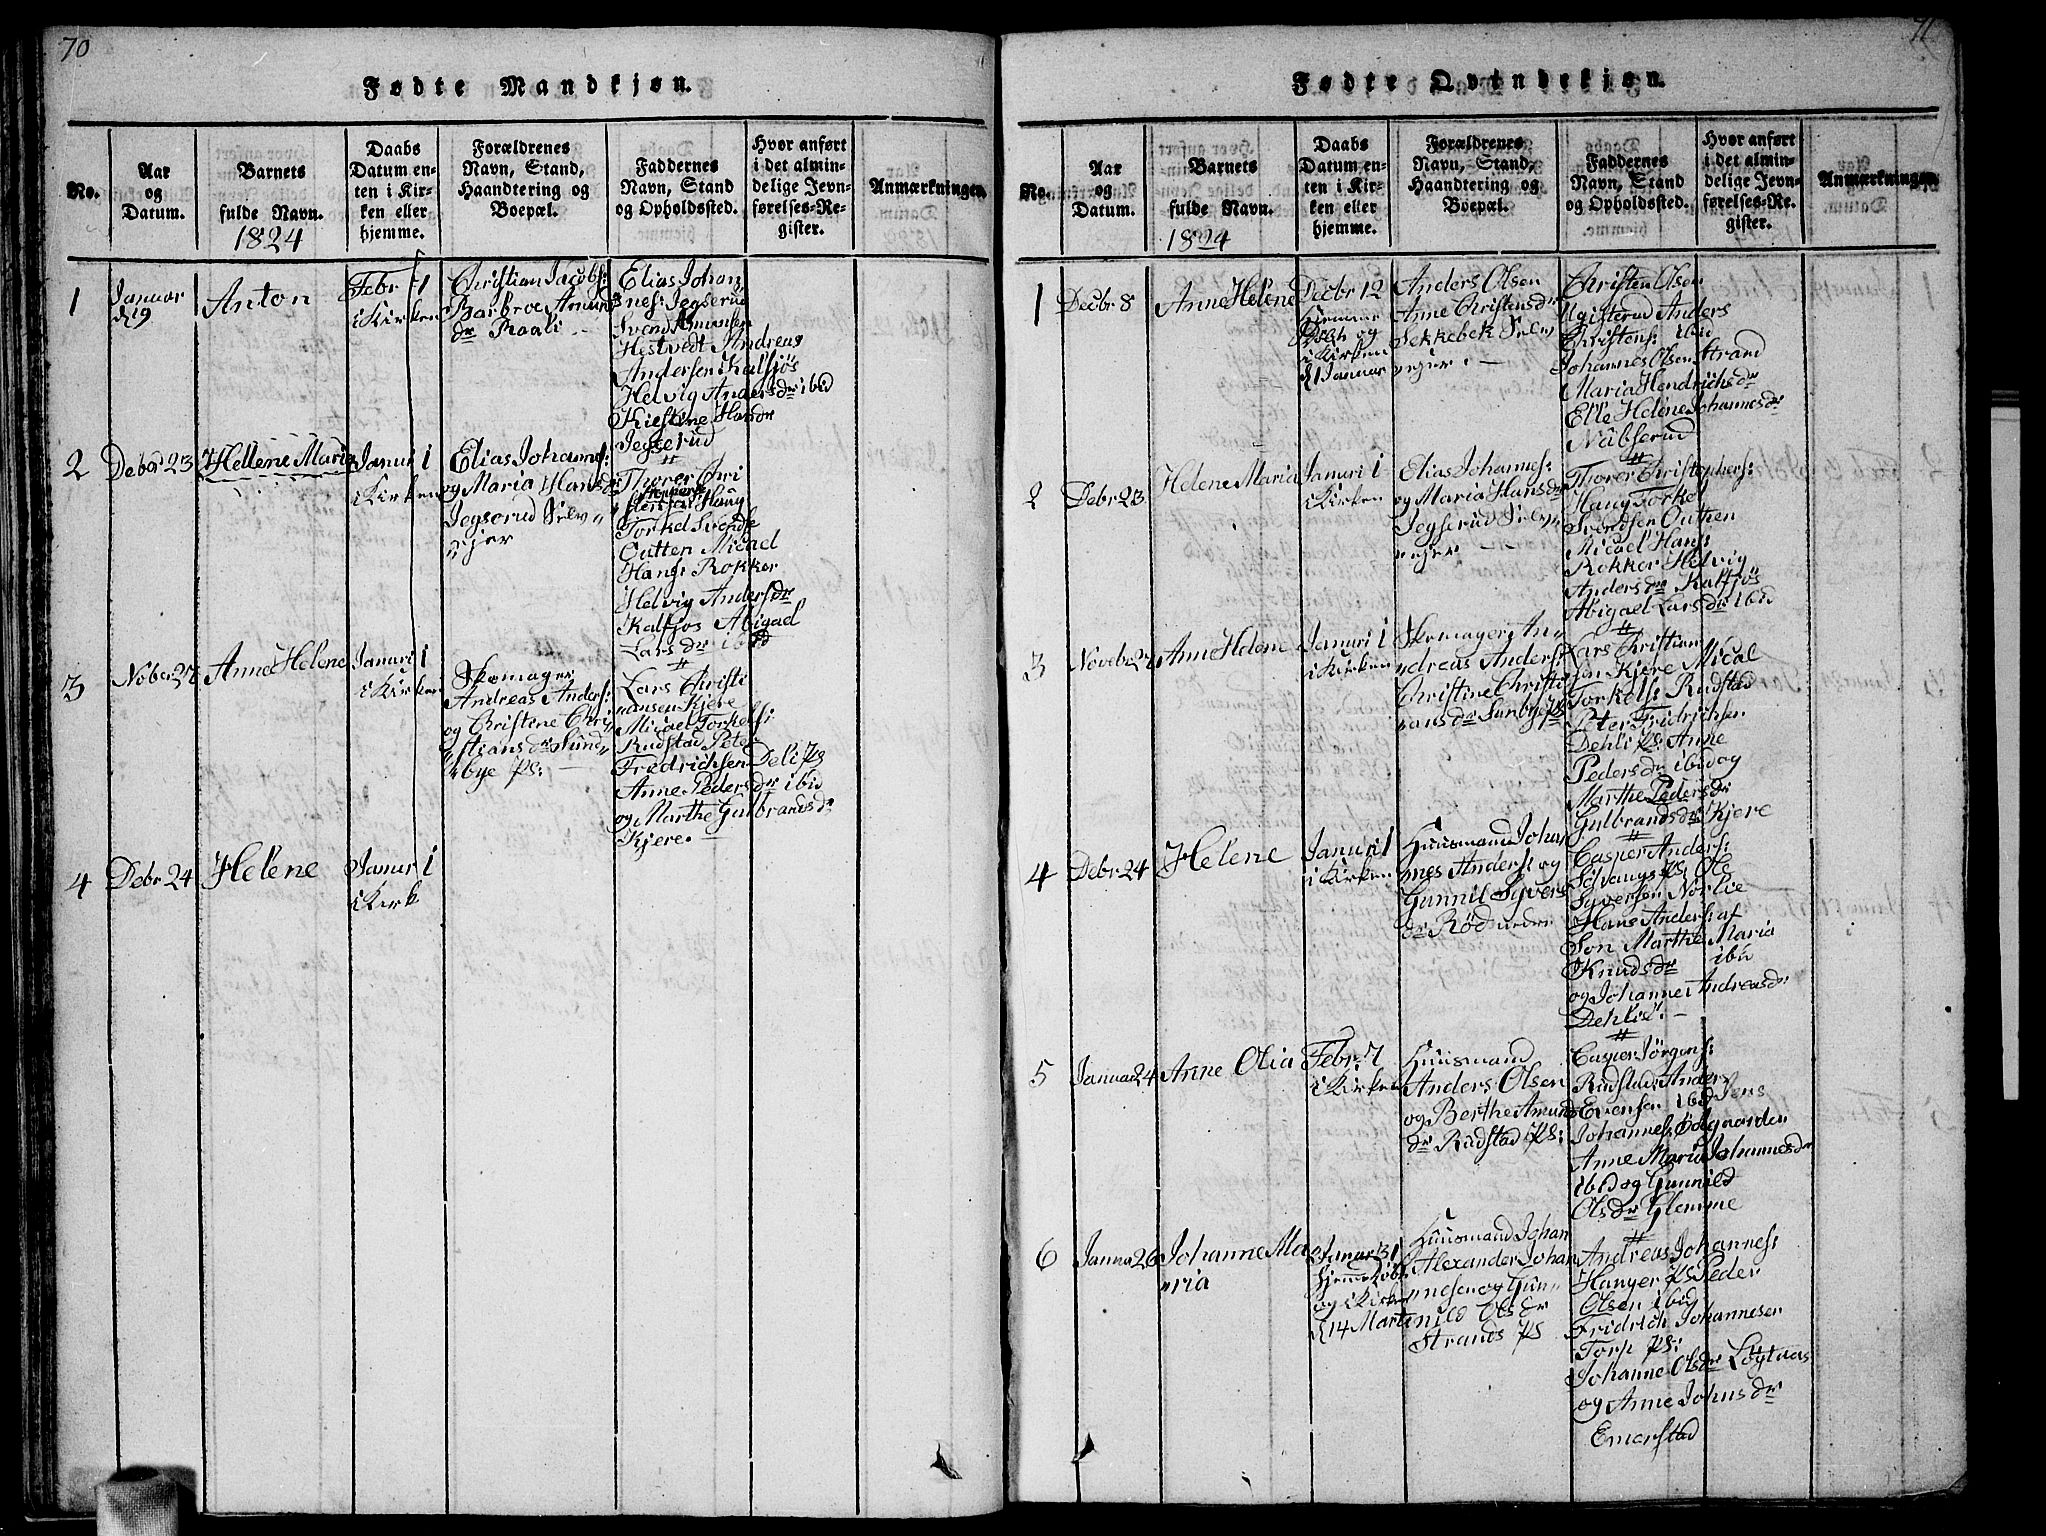 70
Fødte Mandkjøn.
No.
Aar
og
Datum.
Barnets
fulde Navn.
1824
Daabs
Datum en-
ten i Kir-
ken eller
hjemme.
Forældrenes
Navn, Stand,
Haandtering og
Boepæl.
Faddernes
Navn, Stand
og Opholdssted.
Hvor anført
i det almin-
delige Jevn-
førelses-Re-
gister.
Anmærkninger.
1
Januar
d 19
Anton
Febr 1
i Kirken
Christian Jacobs:
Barbroe Amun
dr Raali
Elias Johan
nes: Jegserud
Svend Amunsen
Hestvedt Andreas
Andersen Kalsjøs
Helvig Andersdr ibid
Kiestine Hansdr
Jegserud
2
Debr 23
Hellene Maria
Janur 1
i Kirken
Elias Johanns:
og Maria Hansdr
Jegserud Selv
ejer
Thorer Chri
Haug
Torkel Svendse
Outten Micael
Hans: Rokker
Helvig Andersdr
Kalfjøs Abigael
Larsdr ibid
3
Nobr 27
Anne Helene
Januri 1
i Kirken
Skomager
Andreas Anders:
og Christene Chri
stiansdr Sund
bye Ps:
Lars Christi
ansen Kjere
Micael Torkels:
Rudstad Peter
Fredrichsen Deli Ps
Anne Pedersdr ibid
og Marthe Gulbrandsdr
Kjere.
4
Debr 24
Helene
Januri 1
i Kirk
71
Fødte Qvindekjøn.
No.
Aar
og
Datum.
Barnets
fulde Navn.
1824
Daabs
Datum en-
ten i Kir-
ken eller
hjemme.
Forældrenes
Navn, Stand,
Haandtering og
Boepæl.
Faddernes
Navn, Stand
og Opholdssted.
Hvor anført
i det almin-
delige Jevn-
førelses-Re-
gister.
Anmærkninger.
1
Decbr 8
Anne Helene
Decbr 12
Hjemme
og
i Kirken
d 1 Januar
Anders Olsen
Anne Christensdr
Sekkebek Selv
ejer
Christen Olsen
Ugisterud Anders
Christens: ibid
Johannes Olsen Strand
Maria Hendrichsdr
Elle Helene Johannesdr
Nabserud
2
Debr 23
Helene Maria
Januri 1
i Kirken
Elias Johannes:
og Maria Hansdr
Jegserud Selv
ejer
Thorer Christophers:
Haug Torkel
Svendsen Outhen
Micael Hans:
Rokker Helvig
Andersdr Kalfjøs
Abigael Larsdr ibid
3
Novebr 27
Anne Helene
Januri 1
i Kirken
Skomager An
dreas Anders:
Christine Christi
ansdr Sunbye Ps
Lars Christian
sen Kjere Mical
Torkels: Rudstad
Peter Fridrichsen
Dehli Ps Anne
Pedersdr ibid og
Marthe Pedersdr
Gulbrandsdr Kjere
4
Debr 24
Helene
Januri 1
i Kirken
Huusmand Johan
nes Anders: og
Gunnil Syvers
dr Rød
Casper Anders:
Solvangs Ps Ole
Syversen Norlie
Hans Anders: af
Son Marthe Maria
Knudsdr ibid
og Johanne Andreasdr
Dehlie.
5
Januar 24
Anne Olia
Febr 7
i Kirken
Huusmand
Anders Olsen
og Berthe Amunds
dr Rudstad Ps:
Casper Jørgens:
Rudstad Anders
Evensen ibid Jens
Johannes: Ødgaarden
Anne Maria Johannesdr
ibid og Gunnild
Olsdr Glemme
6
Janua 26
Johanne Ma
ria
Januar 31
hjemme døbt
og i Kirken
d 14 Marti
Huusmand Johan
Alexander Johan
nesen og Gun
nild Olsdr
Strands Ps
Andreas Johannes:
Hanger Ps Peder
Olsen ibid
Fridrich Johannesen
Torp Ps:
Johanne Olsdr Løgtnes
og Anne Johnsdr
Emerstad